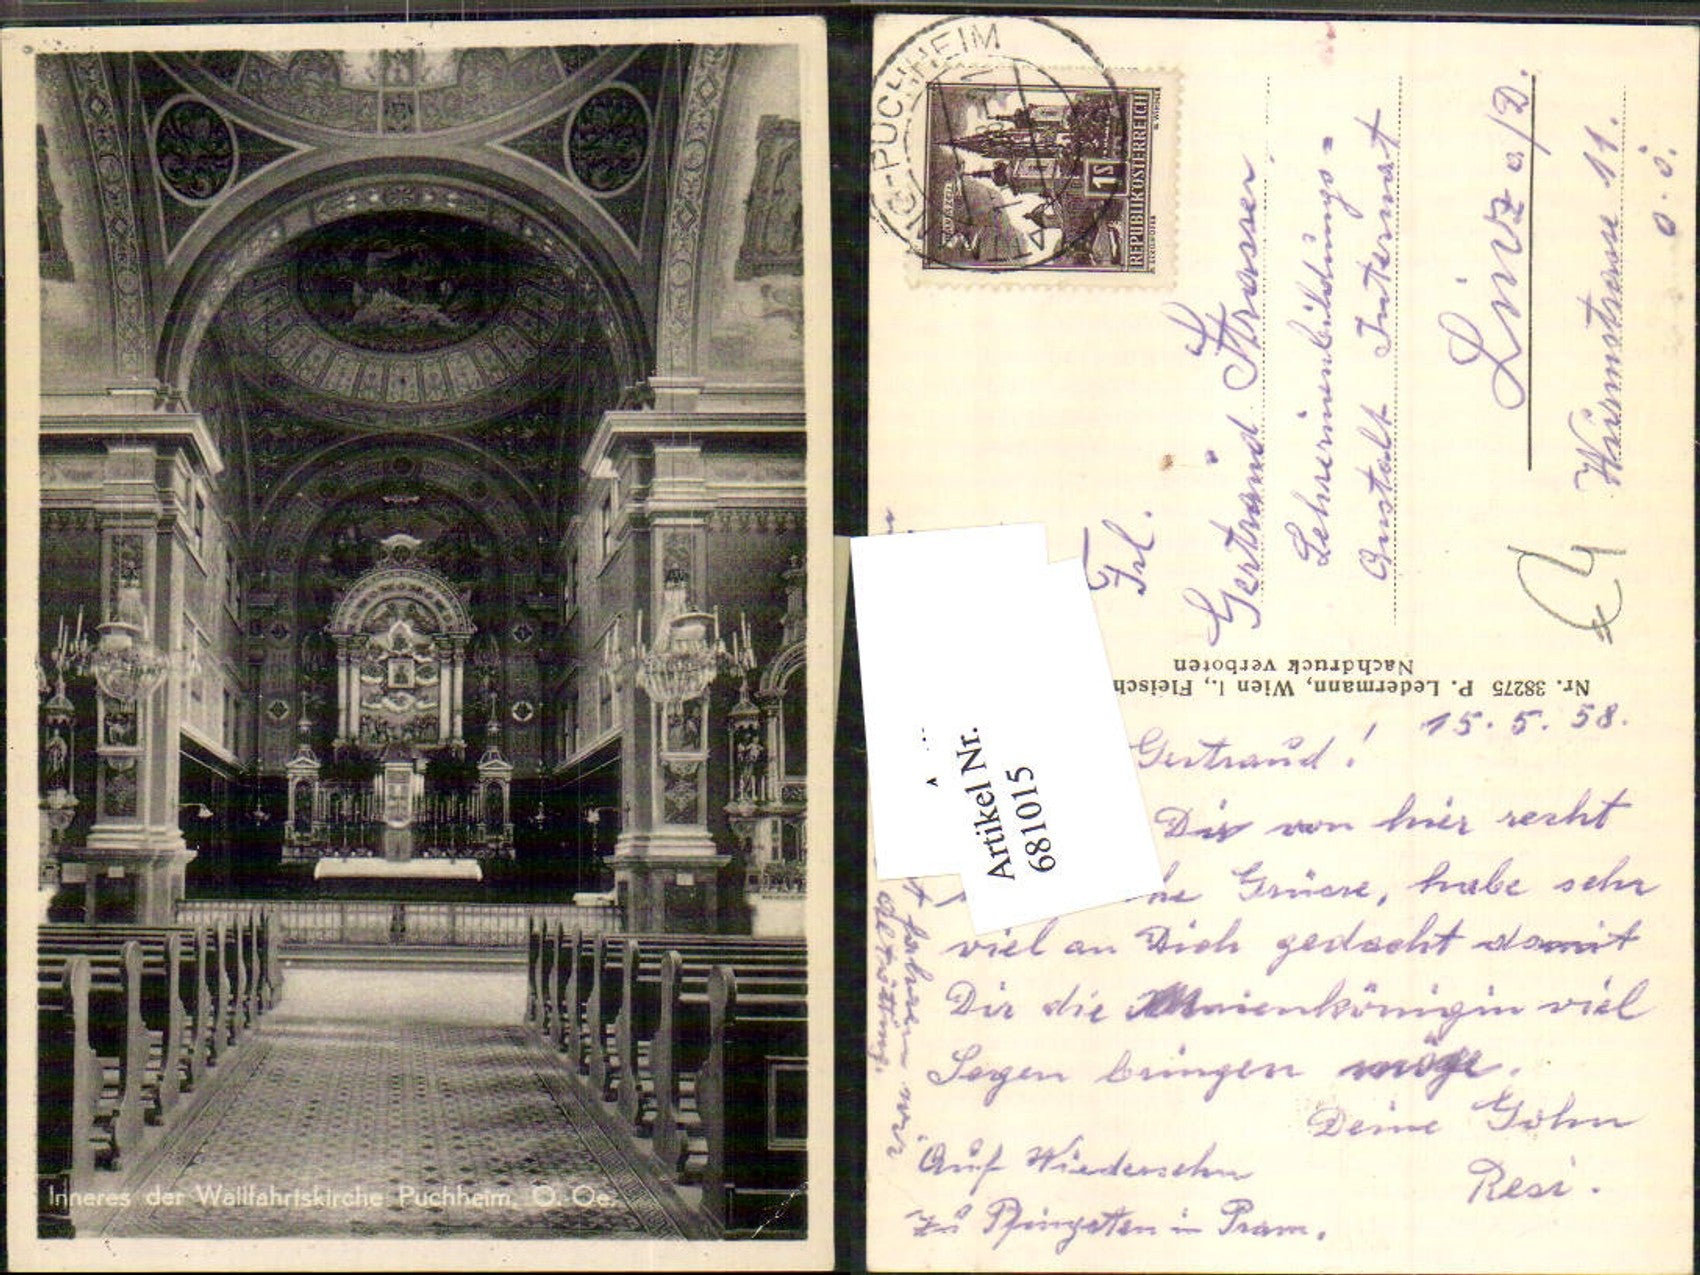 Inneres der Wallfahrtskirche Puchheim, O.-Oe.
-PUCHHEIM
1S
REPUBLIK ÖSTERREICH
Frl.
Gertraud Strasser
Lehrerinnenbildungs=
anstalt Internat
Linz a/D.
Wurmstrasse 11.
O.Ö.
Nr. 38275 P. Ledermann, Wien I., Fleisch
Nachdruck verboten
Artikel Nr.
681015
15.5.58.
Gertraud!
Dir von hier recht
Grüsse, habe sehr
viel an Dich gedacht damit
Dir die Maienkönigin viel
Segen bringen möge.
Deine
Resi.
Auf Wiedersehn
zu Pfingsten in Pram.
fahren wir
Altötting.